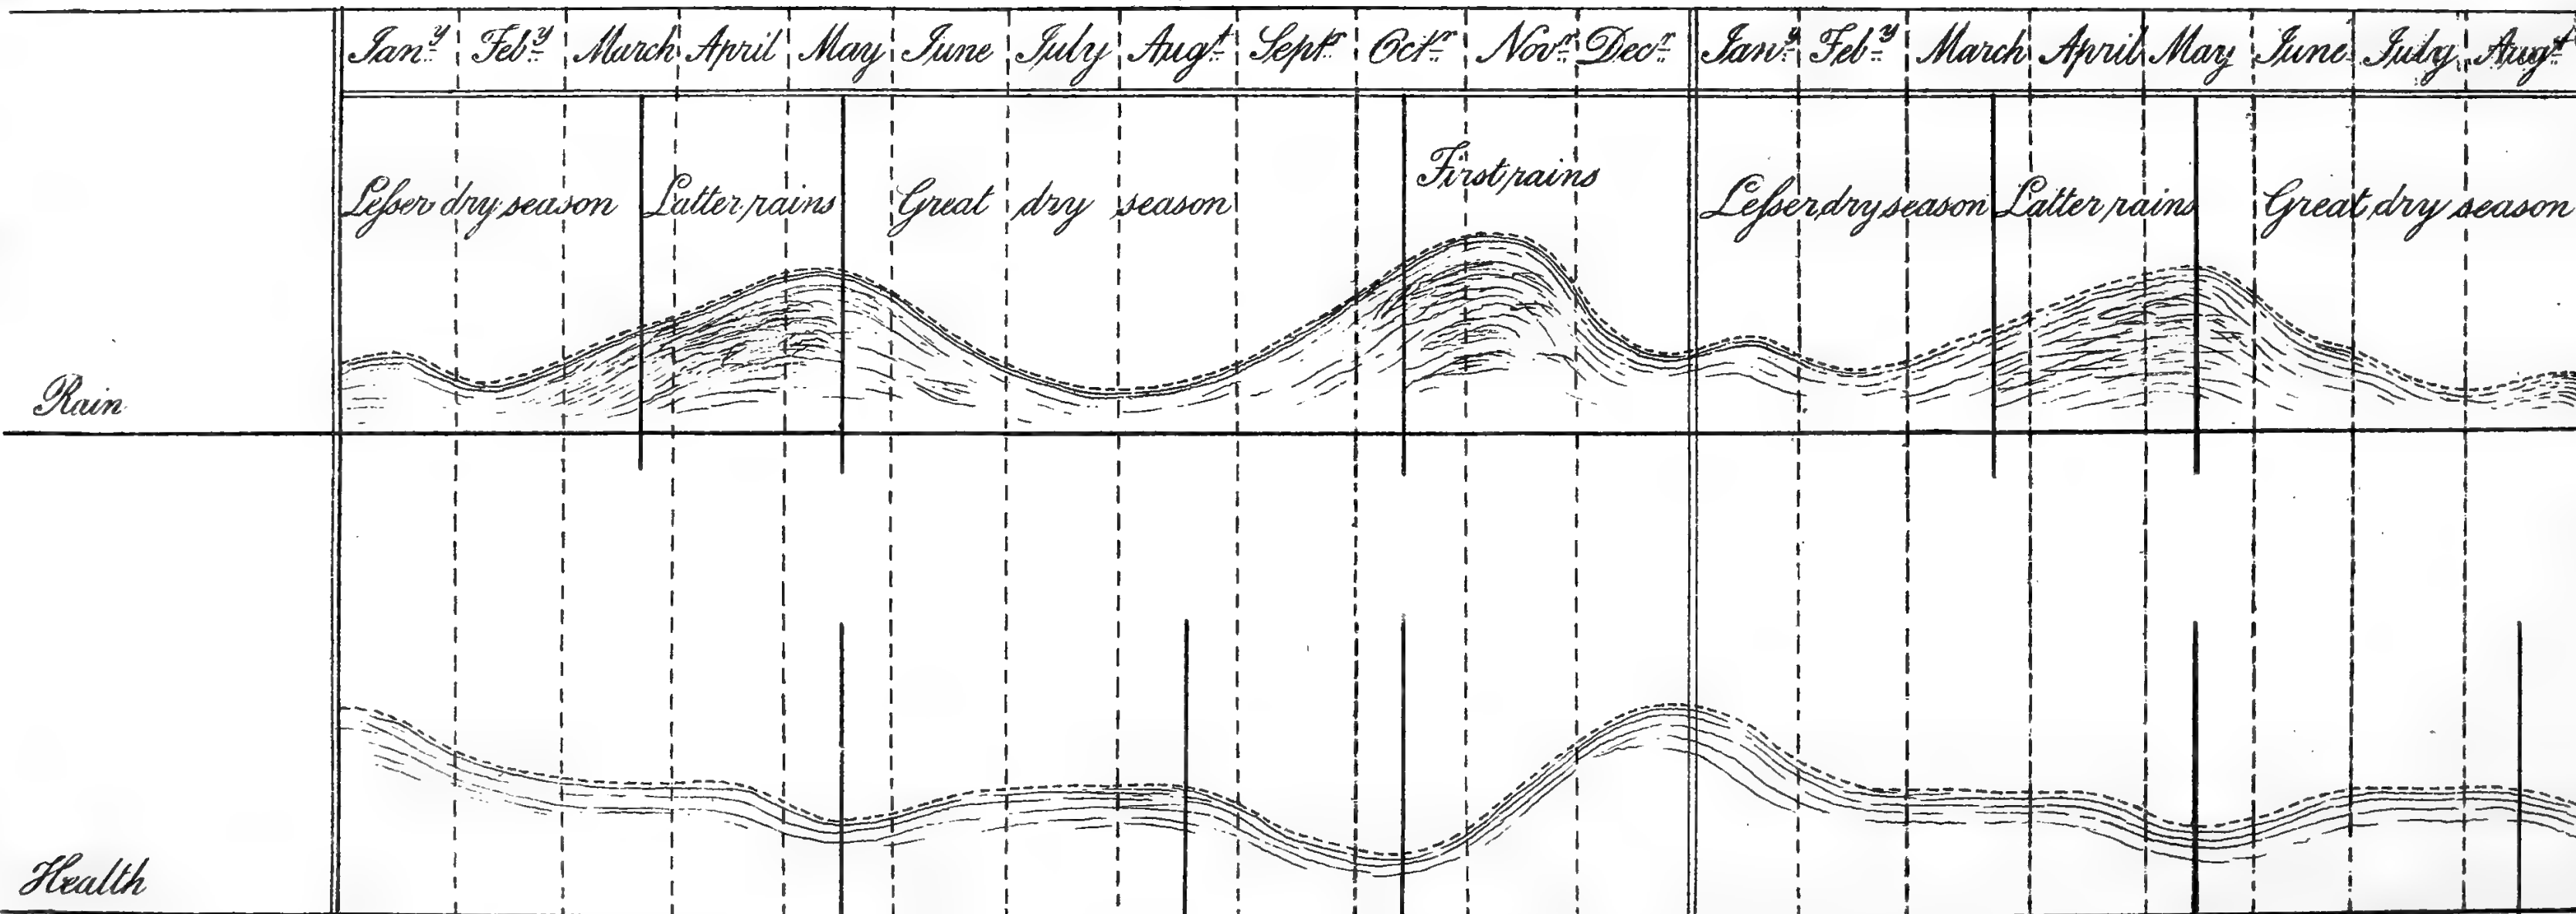 Jan.y Feb.y March April May June July Aug.t Sept.r Oct.r Nov.r Dec.r Jan.y Feb.y March April May June July Aug.t
Leſser dry season Latter rains Great dry season First rains Leſser dry season Latter rains Great dry season
Rain
Health